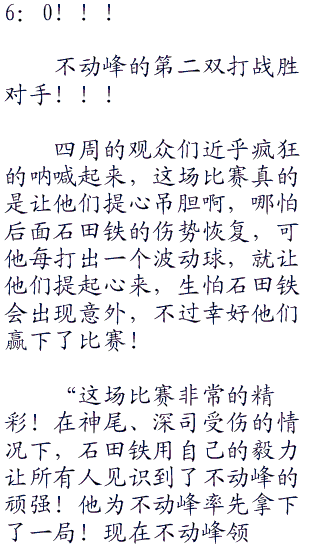 6：0！！！
不动峰的第二双打战胜
对手！！！
四周的观众们近乎疯狂
的呐喊起来，这场比赛真的
是让他们提心吊胆啊，哪怕
后面石田铁的伤势恢复，可
他每打出一个波动球，就让
他们提起心来，生怕石田铁
会出现意外，不过幸好他们
赢下了比赛！
“这场比赛非常的精
彩！在神尾、深司受伤的情
况下，石田铁用自己的毅力
让所有人见识到了不动峰的
顽强！他为不动峰率先拿下
了一局！现在不动峰领